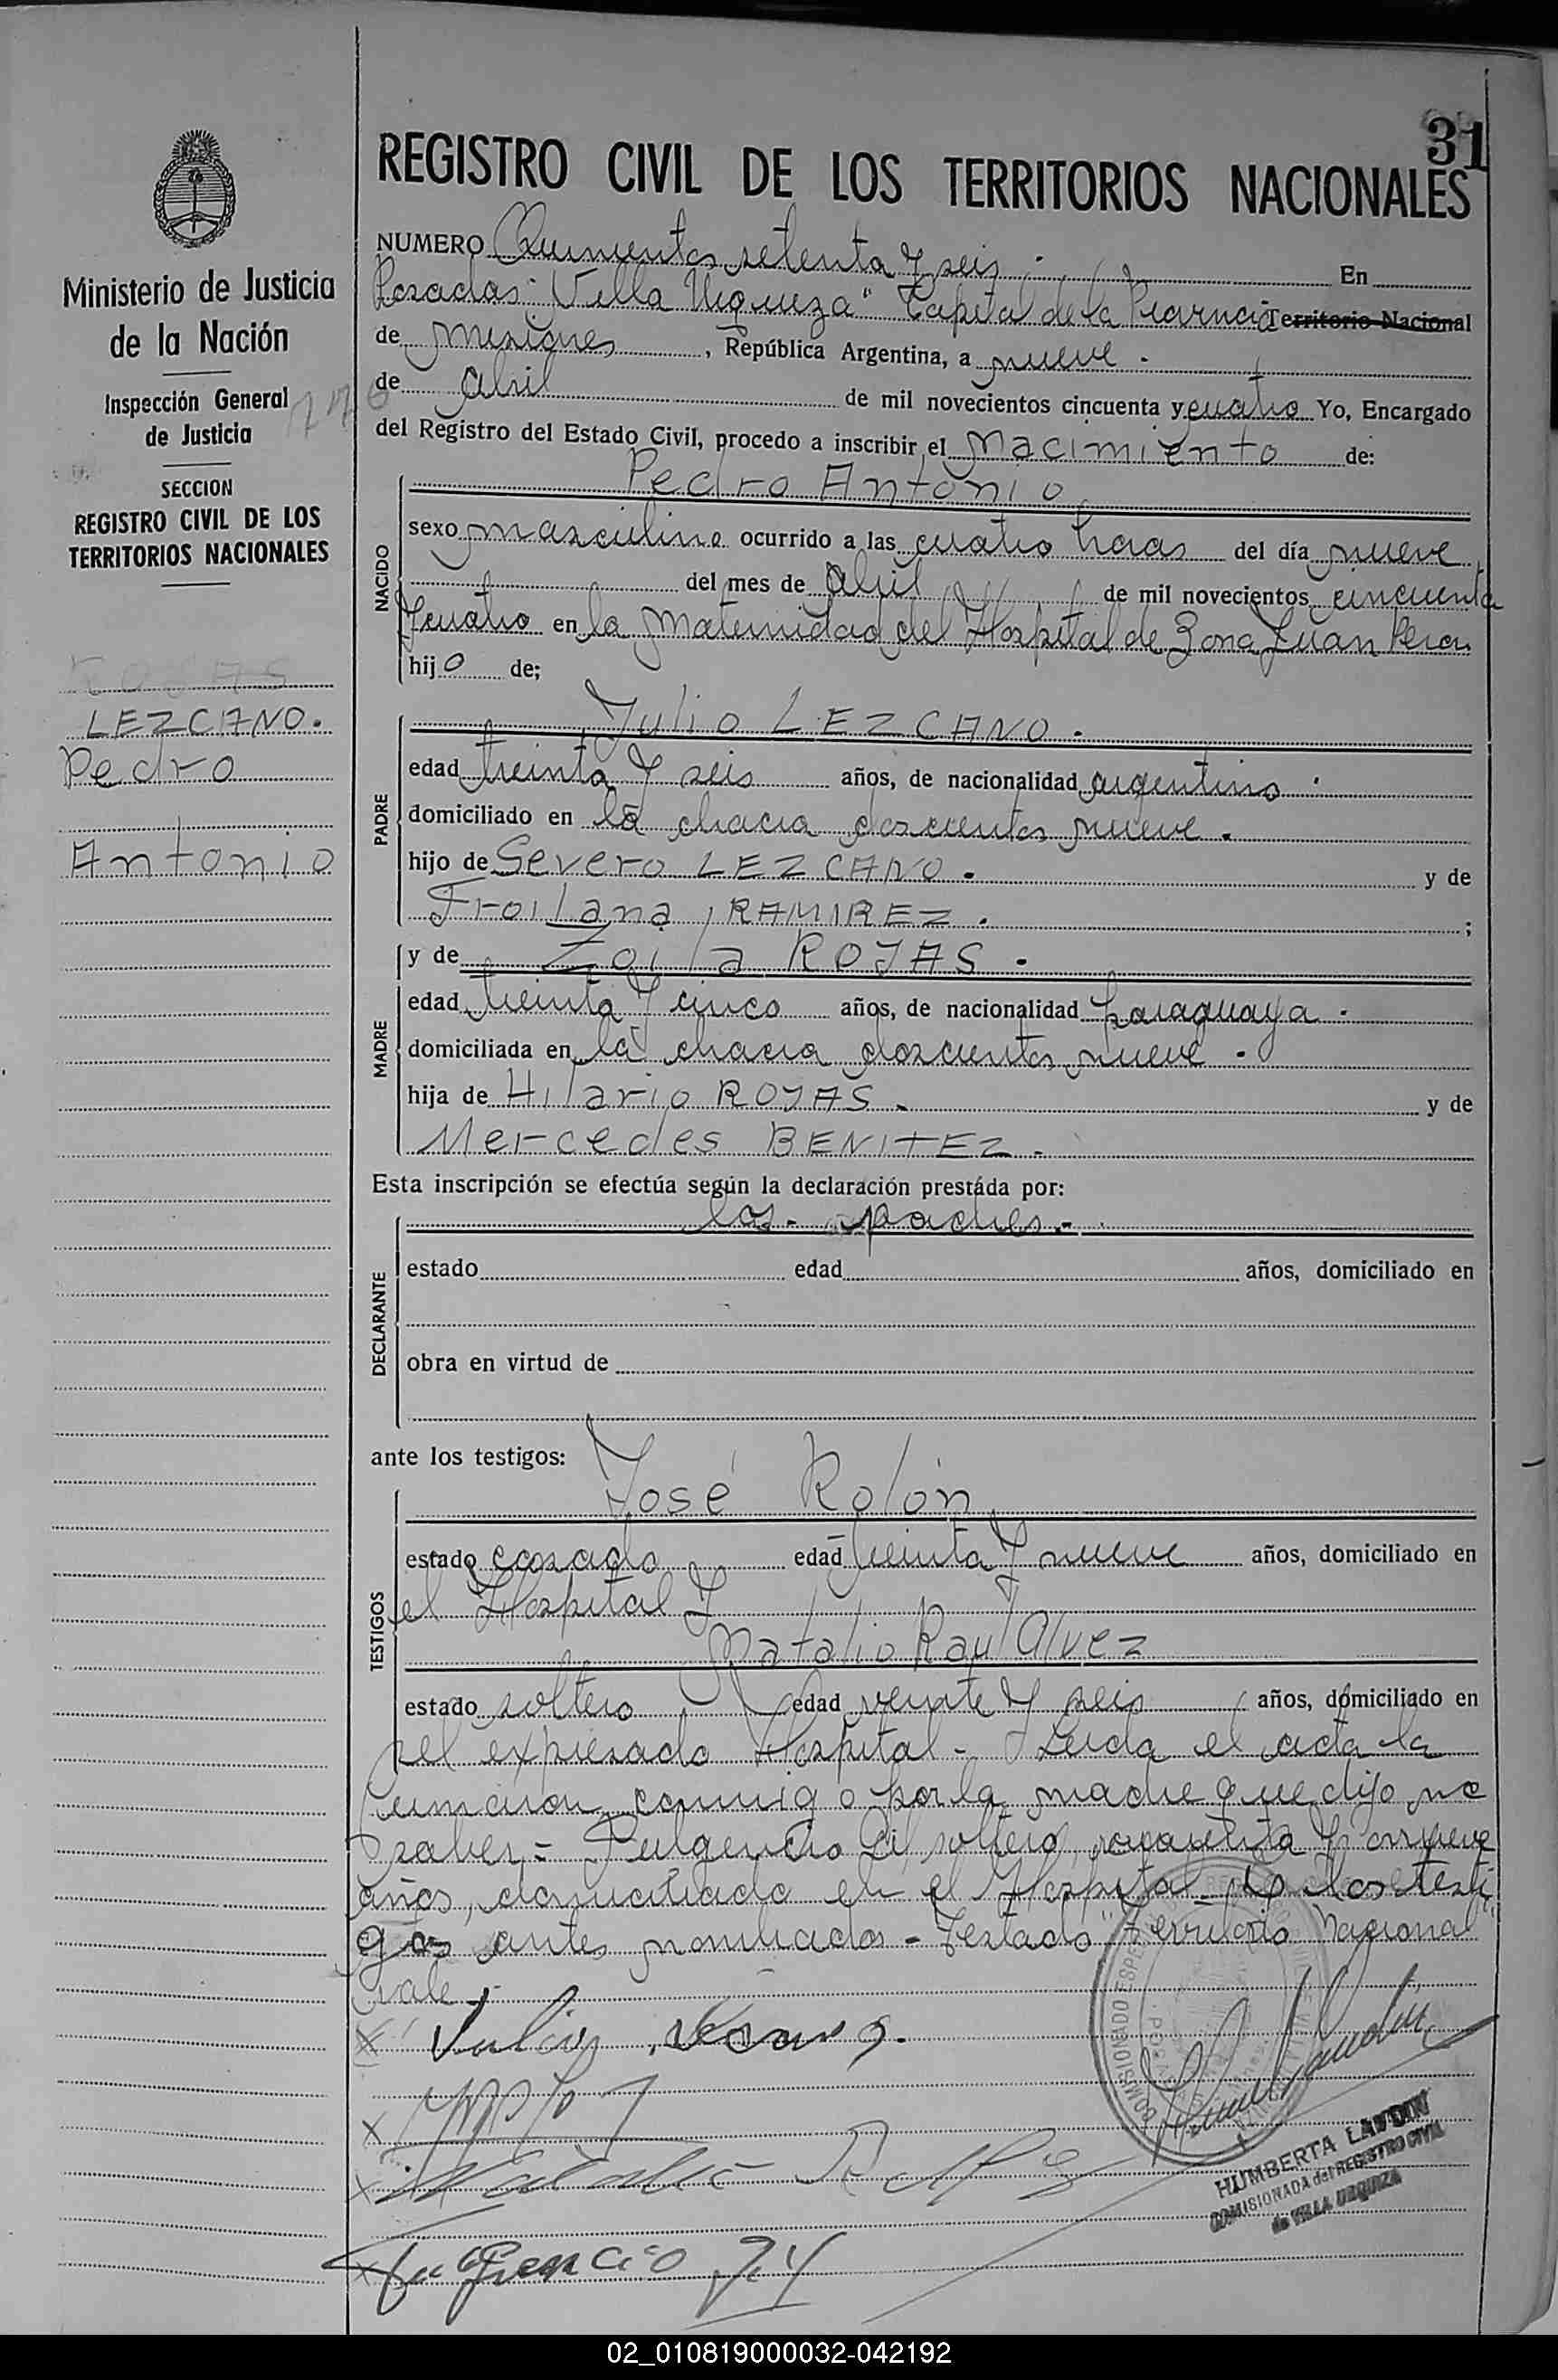 31
REGISTRO CIVIL DE LOS TERRITORIOS NACIONALES
Ministerio de Justicia
de la Nación
Inspección General
de Justicia
SECCION
REGISTRO CIVIL DE LOS
TERRITORIOS NACIONALES
ROJAS
LEZCANO.
Pedro
Antonio
NUMERO Quinientos setenta y seis - En
Posadas "Villa Urquiza" Capital de la Provincia Territorio Nacional
de Misiones, República Argentina, a nueve -
de Abril de mil novecientos cincuenta y cuatro Yo, Encargado
del Registro del Estado Civil, procedo a inscribir el Nacimiento de:
NACIDO
Pedro Antonio
sexo masculino ocurrido a las cuatro horas del día nueve
del mes de Abril de mil novecientos cincuenta
y cuatro en la Maternidad del Hospital de Zona Juan Peron
hijo de;
PADRE
Julio LEZCANO.
edad treinta y seis años, de nacionalidad argentino.
domiciliado en la chacra doscientos nueve.
hijo de Severo LEZCANO. y de
Froilana RAMIREZ. ;
y de Zoila ROJAS.
MADRE
edad treinta y cinco años, de nacionalidad paraguaya.
domiciliada en la chacra doscientos nueve.
hija de Hilario ROJAS. y de
Mercedes BENITEZ.
Esta inscripción se efectúa según la declaración prestada por:
DECLARANTE
los padres.
estado edad años, domiciliado en
obra en virtud de
ante los testigos:
TESTIGOS
José Rolón
estado casado edad treinta y nueve años, domiciliado en
el Hospital y
Natalio Raul Alvez
estado soltero edad veinte y seis años, domiciliado en
el expresado Hospital - Leida el acta la
firmaron conmigo por la madre que dijo no
saber = Fulgencio Gil, soltero, y nueve
años, domiciliado en el Hospital y los testi
gos antes nombrados - Testado "Territorio Nacional"
vale -
Julio Lescano.
Natalio R Alvez
Fulgencio Gil
COMISIONADO
HUMBERTA LANDIN
COMISIONADA del REGISTRO CIVIL
de VILLA URQUIZA
02_010819000032-042192